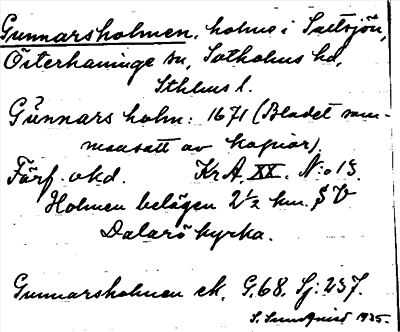 Gunnarsholmen, holme i Saltsjön,
Österhaninge sn, Sotholms hd,
Sthlms l.
Gŭnnars holm: 1671 (Bladet sam-
mansatt av kopior).
Förf. okd. KrA. XX. N:o 13.
Holmen belägen 2 1/2 km. SV
Dalarö kyrka.
Gunnarsholmen ek. G.68. Sj:237.
S. 1935.